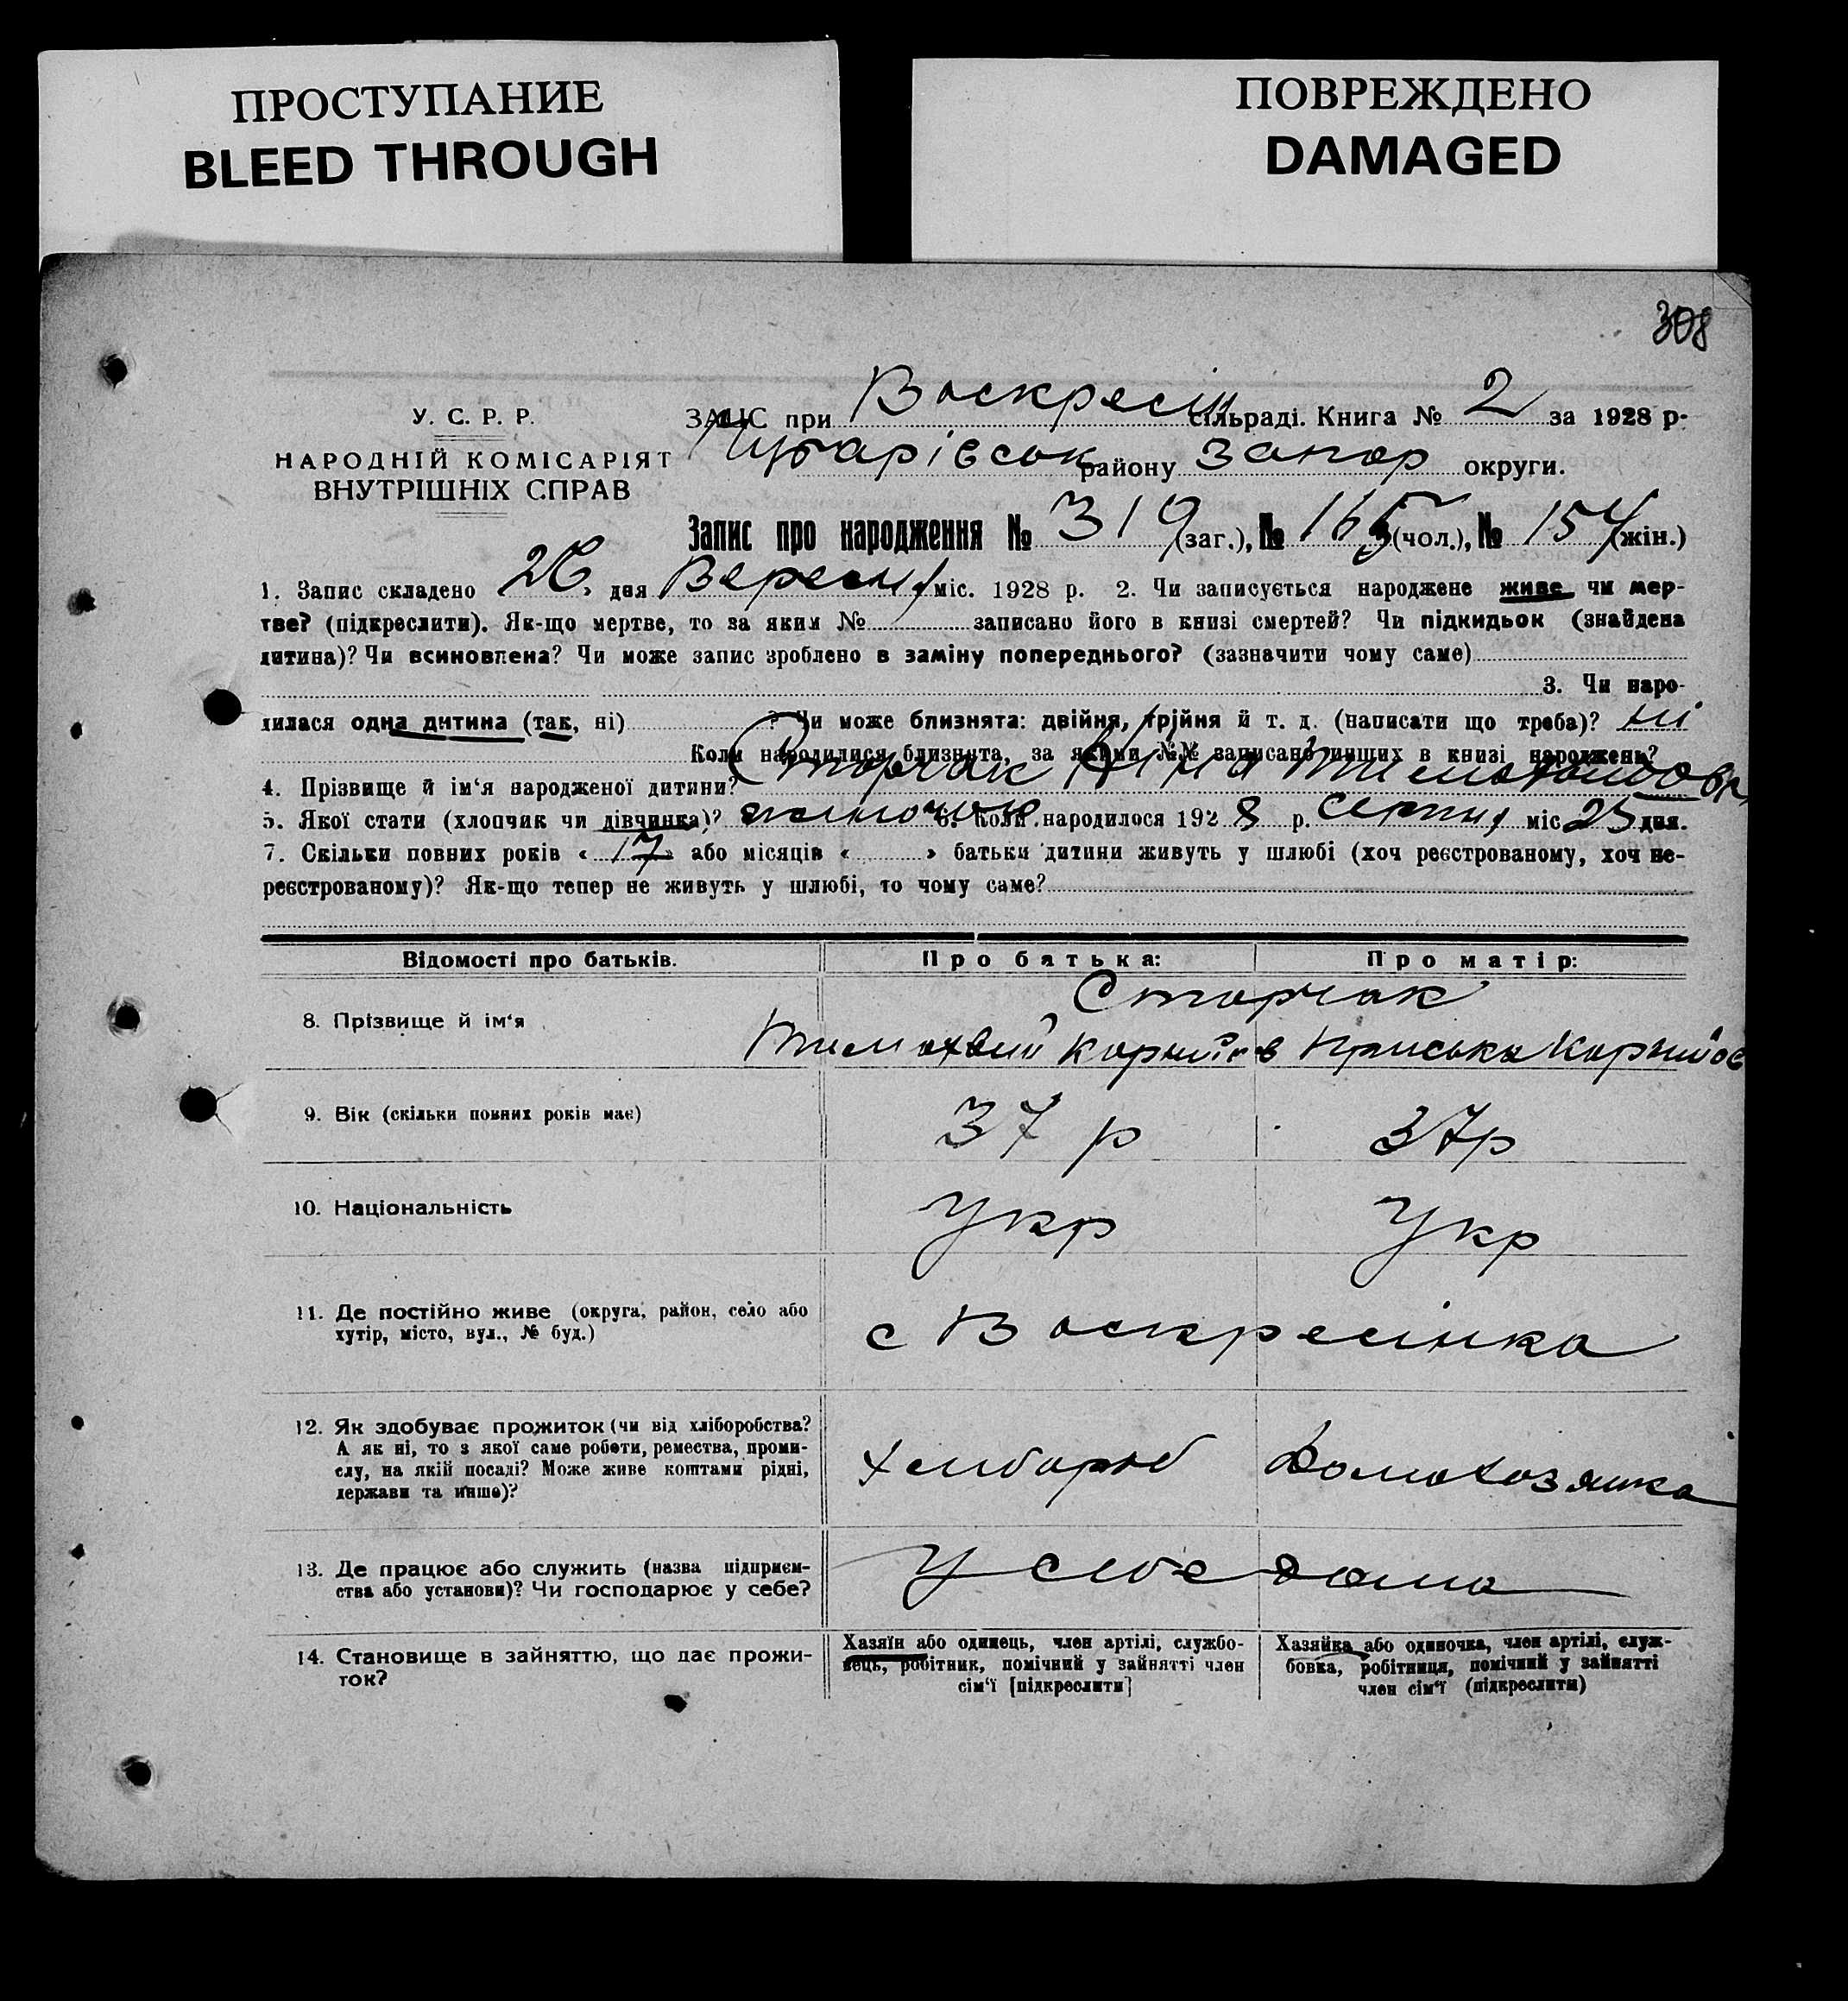 ПРОСТУПАНИЕ
BLEED THROUGH
ПОВРЕЖДЕНО
DAMAGED
308
У. С. Р. Р.
НАРОДНІЙ КОМІСАРІЯТ
ВНУТРІШНІХ СПРАВ
ЗАЦС при Воскресін сільраді. Книга № 2 за 1928 р.
району Запор округи.
Запис про народження № 319 (заг.), № 165 (чол.), № 154 (жін.)
1. Запис складено 26 дня Вересня міс. 1928 р. 2. Чи записується народжене живе чи мер-
тве? (підкреслити). Як-що мертве, то за яким № записано його в книзі смертей? Чи підкидьок (знайдена
дитина)? Чи всиновлена? Чи може запис зроблено в заміну попереднього? (зазначити чому саме)
3. Чи наро-
дилася одна дитина (так, ні) ? Чи може близнята: двійня, трійня й т. д. (написати що треба)? ні
Коли народилися близнята, за якими №№ записано инших в книзі народжень?
4. Прізвище й ім‘я народженої дитини? Сторчак
5. Якої стати (хлопчик чи дівчинка)? жіночою 6. Коли народилося 1928 р. серпня міс 25 дня.
7. Скільки повних років « 17 » або місяців « » батьки дитини живуть у шлюбі (хоч реєстрованому, хоч не-
реєстрованому)? Як-що тепер не живуть у шлюбі, то чому саме?
Відомості про батьків. Про батька: Про матір:
Сторчак
8. Прізвище й ім‘я Тимохвий Корнійов Приська Корнійов
9. Вік (скільки повних років має) 37 р 37р
10. Національність Укр Укр
11. Де постійно живе (округа, район, село або
хутір, місто, вул., № буд.) с Воскресінка
12. Як здобуває прожиток (чи від хліборобства?
А як ні, то з якої саме роботи, ремества, проми-
слу, на якій посаді? Може живе коштами рідні,
держави та инше)? Хлибороб Домохозяйка
13. Де працює або служить (назва підприєм-
ства або установи)? Чи господарює у себе? У себе дома
14. Становище в зайняттю, що дає прожи-
ток?
Хазяїн або одинець, член артілі, службо-
вець, робітник, помічний у зайнятті член
сім‘ї [підкреслити]
Хазяйка або одиночка, член артілі, служ-
бовка, робітниця, помічний у зайнятті
член сім‘ї (підкреслити)